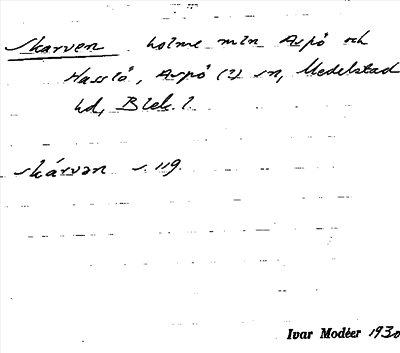 Skarven holme mln Aspö och
Hasslö, Aspö (?) sn, Medelstad
hd, Blek. l.
skárvan s. 119.
Ivar Modéer 1930